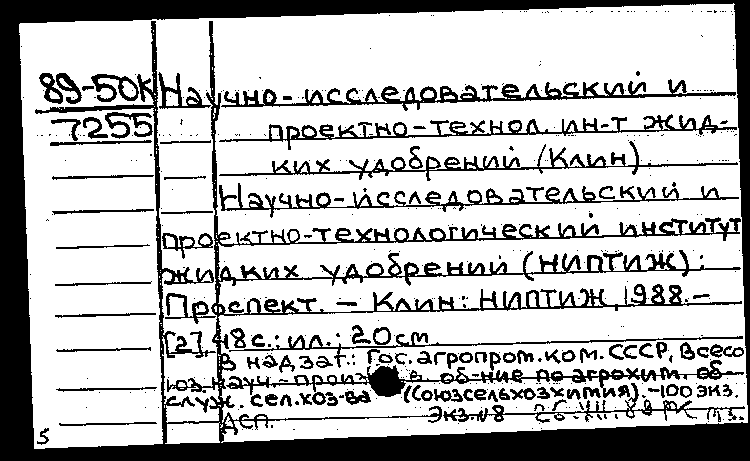 89-50К Научно-исследовательский и
7255 проектно-технол. ин-т жид-
ких удобрений (Клин).
Научно-исследовательский и
проектно-технологический институт
жидких удобрений (НИПТИЖ):
Проспект. — Клин: НИПТИЖ, 1988.—
[2], 48 с.: ил.; 20 см.
В надзаг.: Гос. агропром. ком. СССР, Всесо
юз. науч.-произв. об-ние по агрохим. об-
служ. сел. хоз-ва (Союзсельхозхимия).—100 экз.
Экз. №8
ДСП.
5